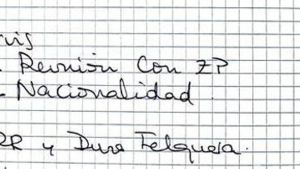 . Reunión Con ZP
- Nacionalidad.
RR y Duro Felguera.